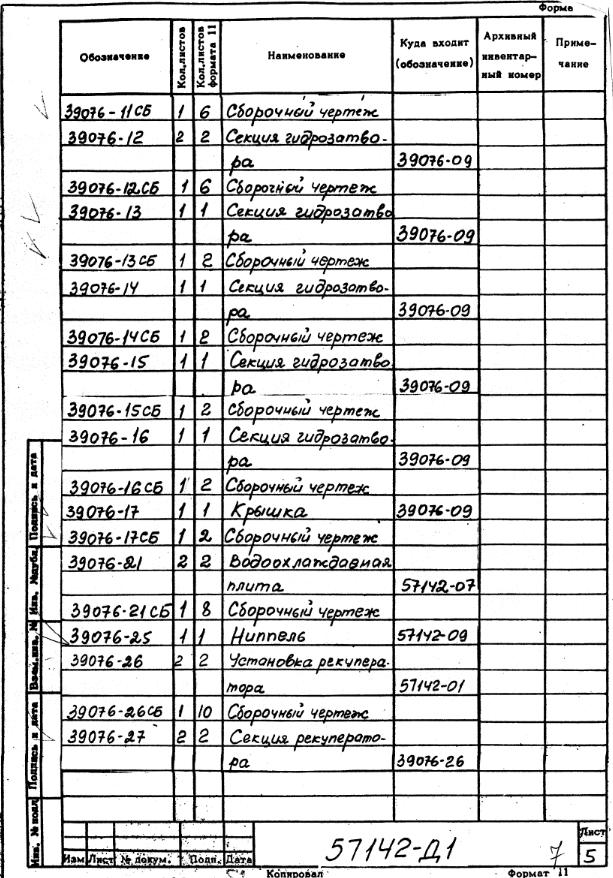 Форма
Обозначение Кол.листов Кол.листов формата 11 Наименование Куда входит (обозначение) Архивный инвентарный номер Примечание
39076-11СБ 1 6 Сборочный чертеж
39076-12 2 2 Секция гидрозатво-
ра 39076-09
39076-12СБ 1 6 Сборочный чертеж
39076-13 1 1 Секция гидрозатво
ра 39076-09
39076-13СБ 1 2 Сборочный чертеж
39076-14 1 1 Секция гидрозатво-
ра 39076-09
39076-14СБ 1 2 Сборочный чертеж
39076-15 1 1 Секция гидрозатво
ра 39076-09
39076-15СБ 1 2 Сборочный чертеж
39076-16 1 1 Секция гидрозатво-
ра 39076-09
39076-16СБ 1 2 Сборочный чертеж
39076-17 1 1 Крышка 39076-09
39076-17СБ 1 2 Сборочный чертеж
39076-21 2 2 Водоохлаждавмая
плита 57142-07
39076-21СБ 1 8 Сборочный чертеж
39076-25 1 1 Ниппель 57142-09
39076-26 2 2 Установка рекупера-
тора 57142-01
39076-26СБ 1 10 Сборочный чертеж
39076-27 2 2 Секция рекуперато-
ра 39076-26
Подпись и дата
Инв. № дубл.
Взам.инв. №
Подпись и дата
Инв. № подл
Изм Лист № докум. Подп. Дата
57142-Д1
7
Лист
5
Копировал Формат 11